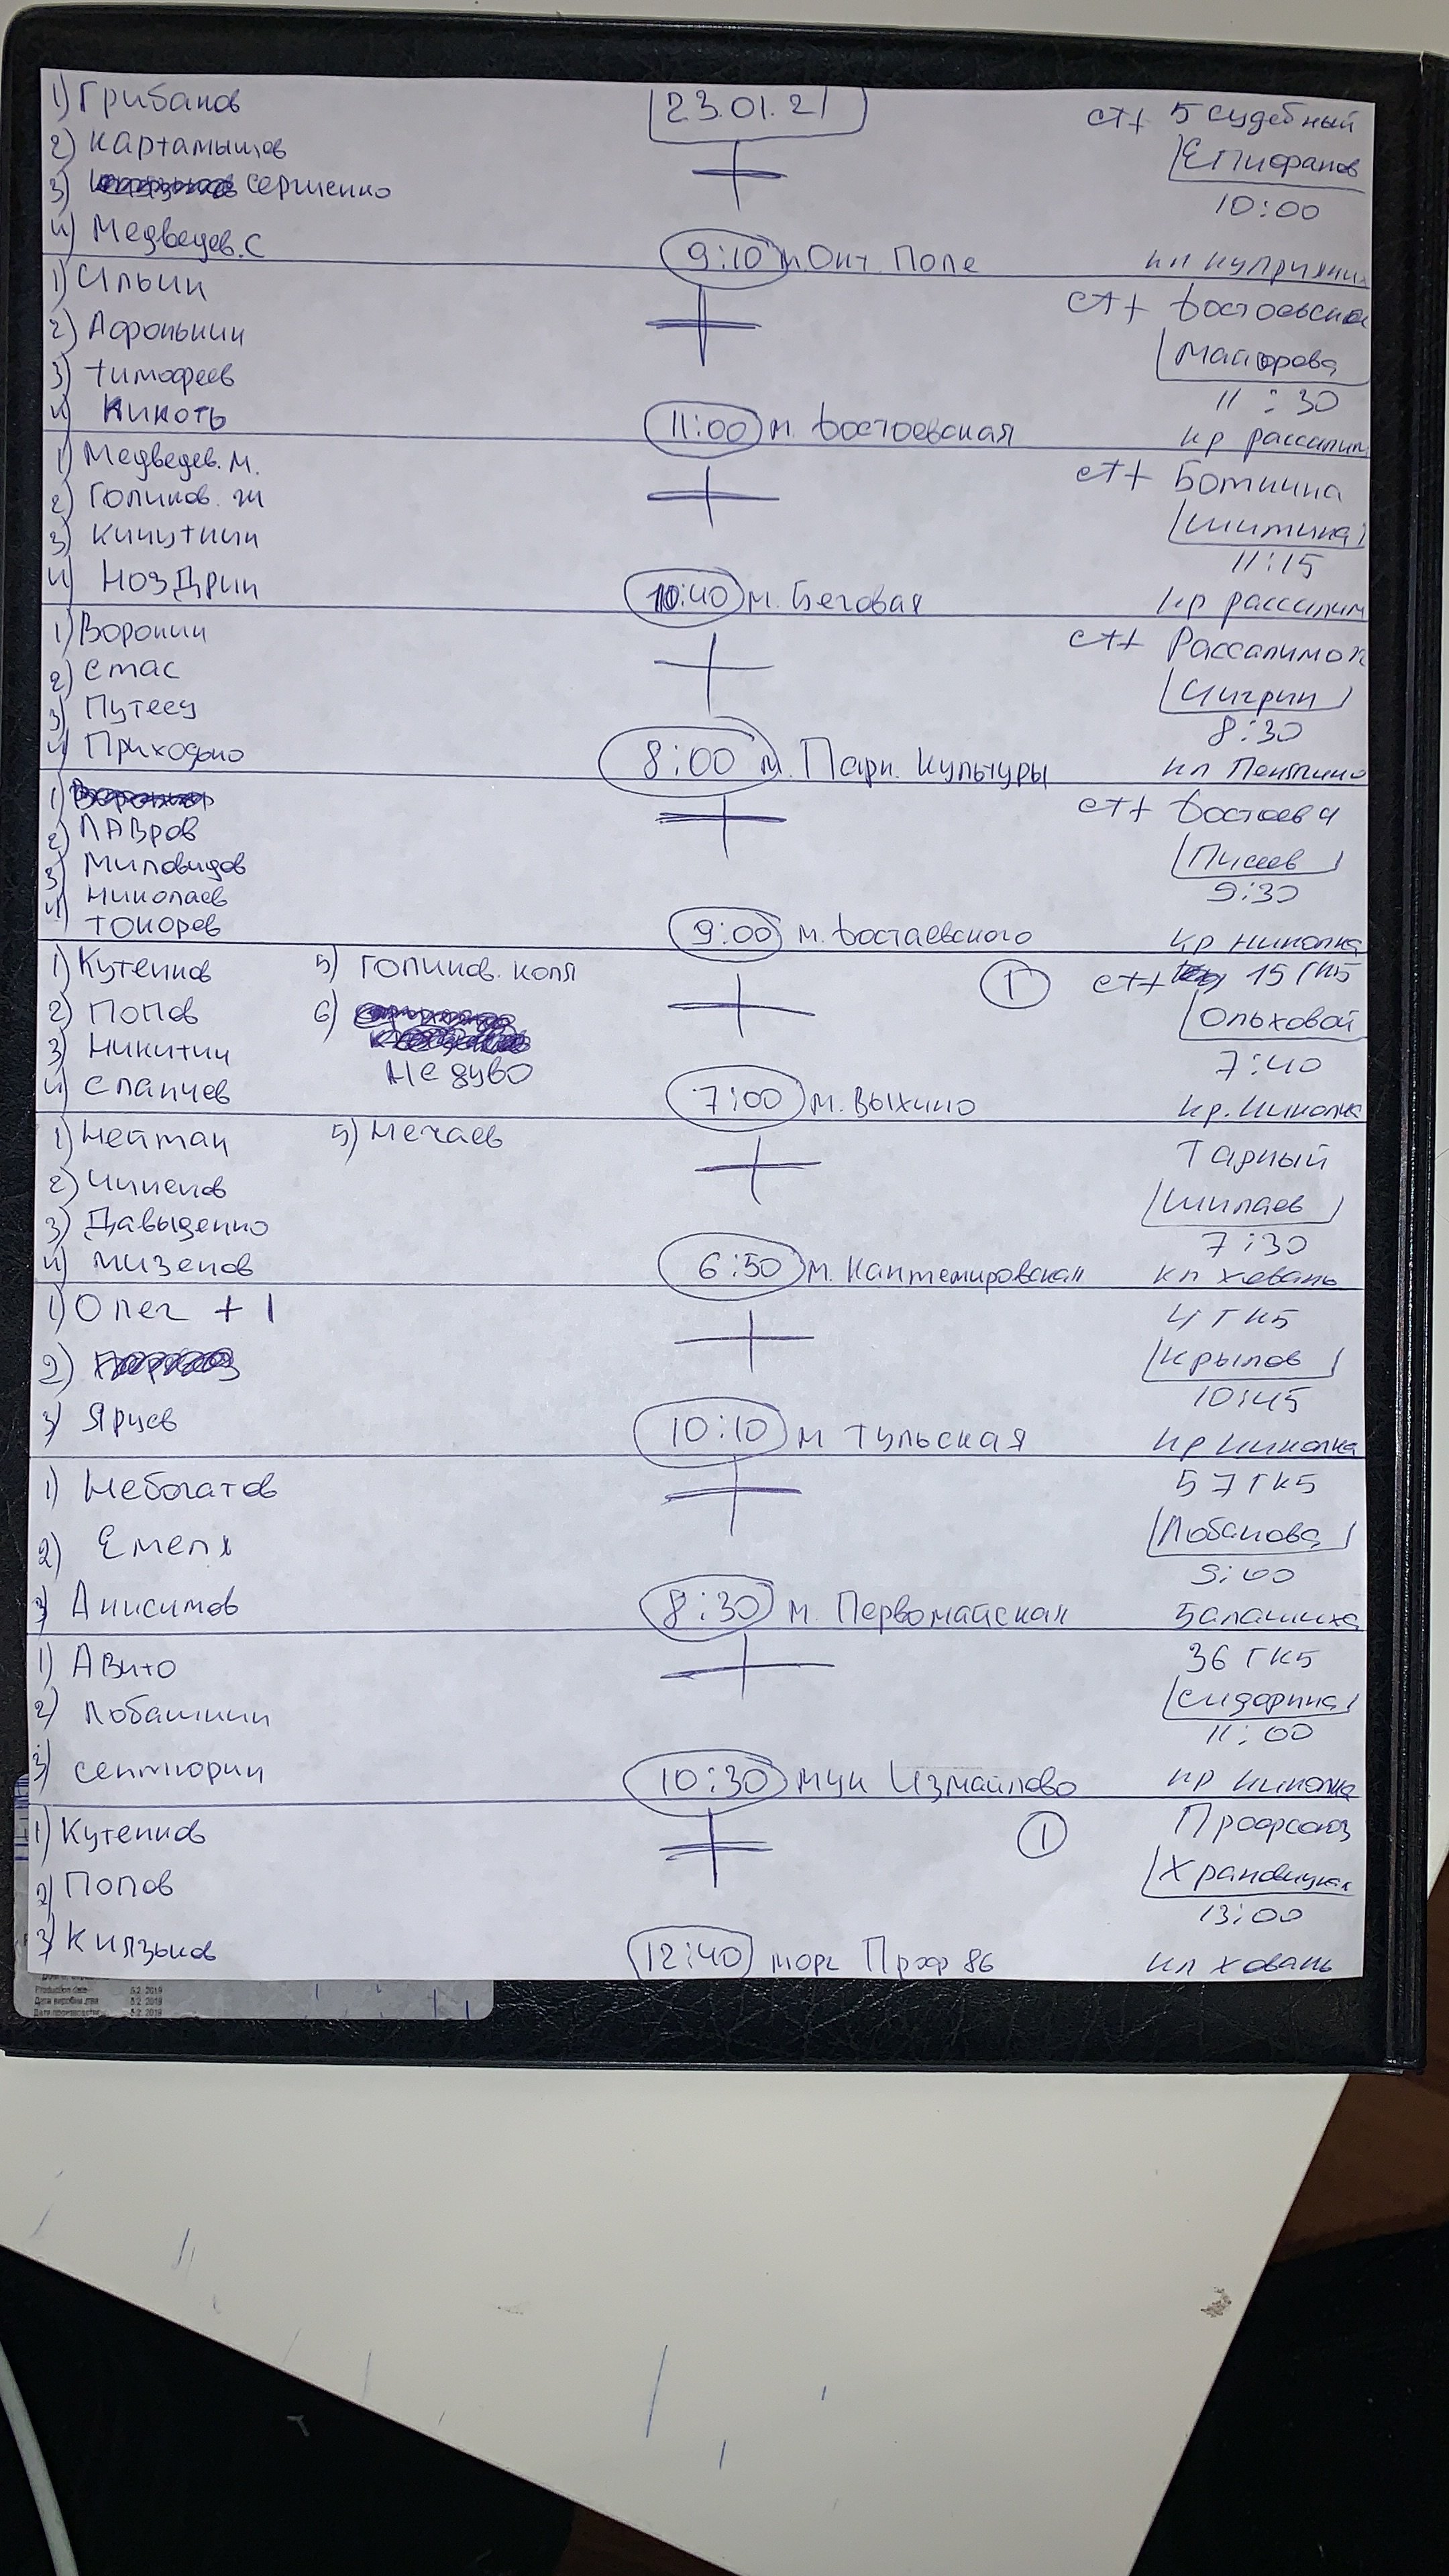 23.01.21
1) Грибанов
2) Картамышов
3) Сергиенко
4) Медведев. С
9:10 м Окт. Поле
ст+ 5 судебный
Епифанов
10:00
кл куприянии
1) Ильин
2) Афонькин
3) Тимофеев
4) Кикоть
11:00 м. Достоевская
ст+ Достоевской
Майорова
11:30
кр рассалим
1) Медведев. М.
2) Голиков. ж
3) Кичуткин
4) Ноздрин
10:40 м. Беговая
ст+ Боткина
Шитина
11:15
кр рассалим
1) Воронин
2) Стас
3) Путеец
4) Приходько
8:00 м. Парк. Культуры
ст+ Рассалимо
Чигрин
8:30
кл Пенягино
1)
2) Лавров
3) Миловидов
4) Николаев
Токорев
9:00 м. Достаевского
ст+ Достоев
Писеев
9:30
кр николка
1) Кутепков 5) Голиков. Коля
2) Попов 6)
3) Никитин
4) Слапчев Недуво
7:00 м. Выхино
1 ст+ 15 ГКБ
Ольховой
7:40
кр. николка
1) Нейман 5) Нечаев
2) Чипенов
3) Давыденко
4) Мизенов
6:50 м. Кантемировская
Тарный
Шилаев
7:30
кл ховань
1) Олег + 1
2)
3) Ярцев
10:10 м Тульская
4 ГКБ
Крылов
10:45
кр николка
1) Небогатов
2) Емеля
3) Анисимов
8:30 м. Первомайская
57 ГКБ
Лобанова
9:00
Балашиха
1) Авито
2) Лобашкин
3) сентюрин
10:30 мцк Измайлово
36 ГКБ
Сидорина
11:00
кр николка
1) Кутепков
2) Попов
3) Килзыков
12:40 морг Проф 86
1 Профсоюз
Храновицкая
13:00
кл ховань
Production date 5.2.2019
5.2.2019
5.2.2019